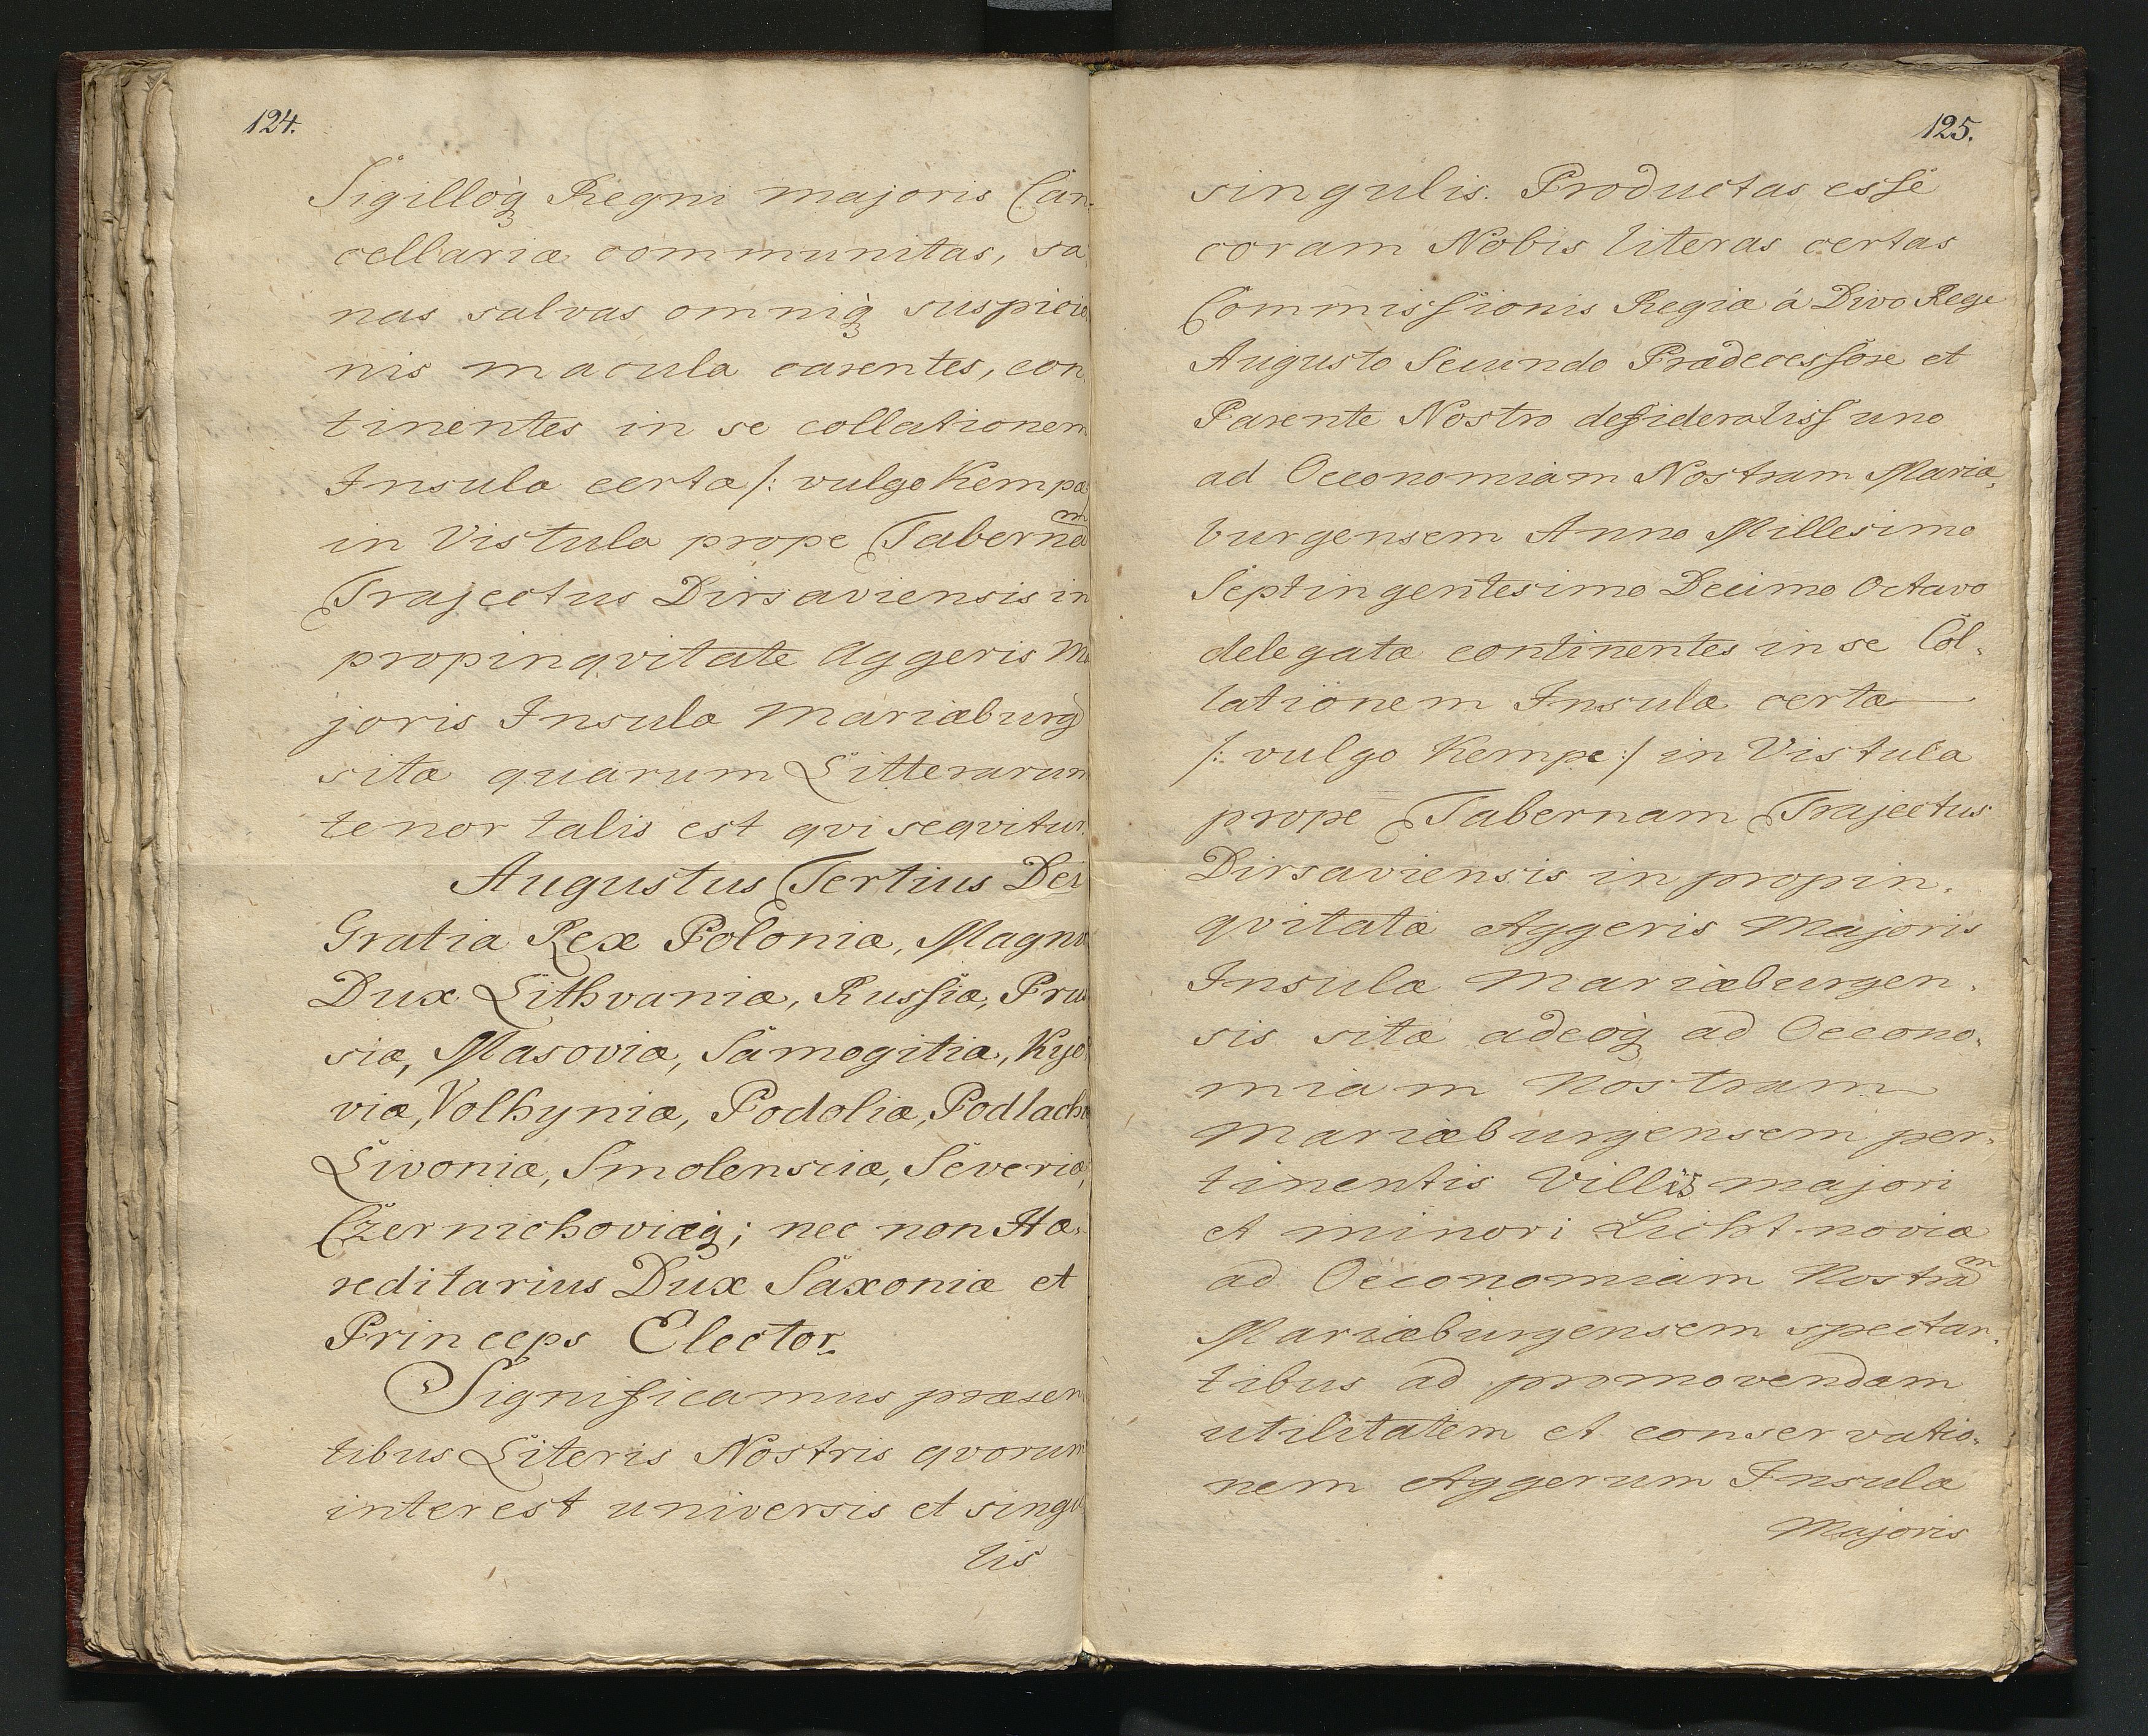 124.
Sigilloq́ Regni majoris Can-
cellariæ communitas, sa
nas salvas omniq́ suspicio
nis macula carentes, con
tinentes in se collationem
Insulæ certæ /: vulgo Kempæ
in Vistula prope Tabernam
Trajectus Dirsaviensis in
propinqvitate Aggeris Ma
joris Insulæ Mariæburg
sitæ quarum Litterarum
tenor talis est qvi seqvitur
Augustus Tertius Dei
Gratia Rex Poloniæ, Magnus
Dux Lithvaniæ, Russiæ, Prus
siæ, Masoviæ, Samogitiæ, Kyo
viæ, Volhyniæ, Podoliæ, Podlachi
Livoniæ, Smolensciæ, Severiæ,
Czernichoviæq́; nec non Hæ-
reditarius Dux Saxoniæ et
Princeps Elector.
Significamus præsen
tibus Literis Nostris qvorum
interest universis et singu
lis
125.
singulis. Productas esse
coram Nobis literas certas
Commissionis Regiæ á Divo Rege
Augusto Secundo Prædecessore et
Parente Nostro desideratissimo
ad Oeconomiam Nostram Mariæ-
burgensem Anno Millesimo
Septingentesimo Decimo Octavo
delegatæ continentes in se Col-
lationem Insulæ certæ
/: vulgo Kempe :/ in Vistula
prope Tabernam Trajectus
Dirsaviensis in propin-
qvitatæ Aggeris Majoris
Insulæ Mariæburgen-
sis sitæ adeoq́ ad Oecono-
miam Nostram
Mariæburgensem per-
tinentis Villis majori
et minori Licht-noviæ
ad Oeconomiam Nostram
Mariæburgensem spectan-
tibus ad promovendam
utilitatem et conservatio-
nem Aggerum Insulæ
Majoris